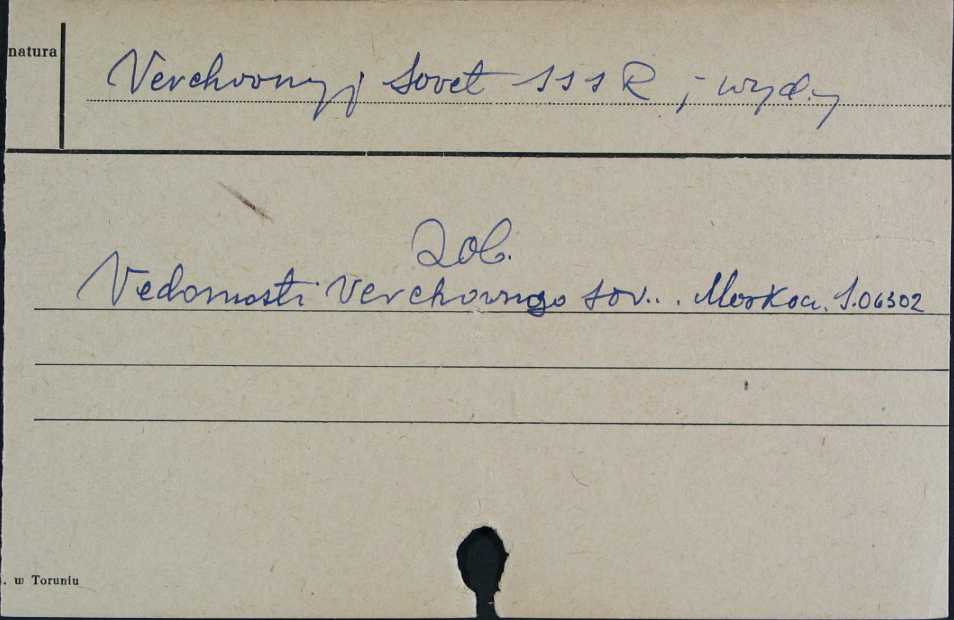 natura
Verchovnyj Sovet SSSR ; wyd.
Zob.
Vedomosti Verchovnogo Sov... Moskva. S.06302
. w Toruniu